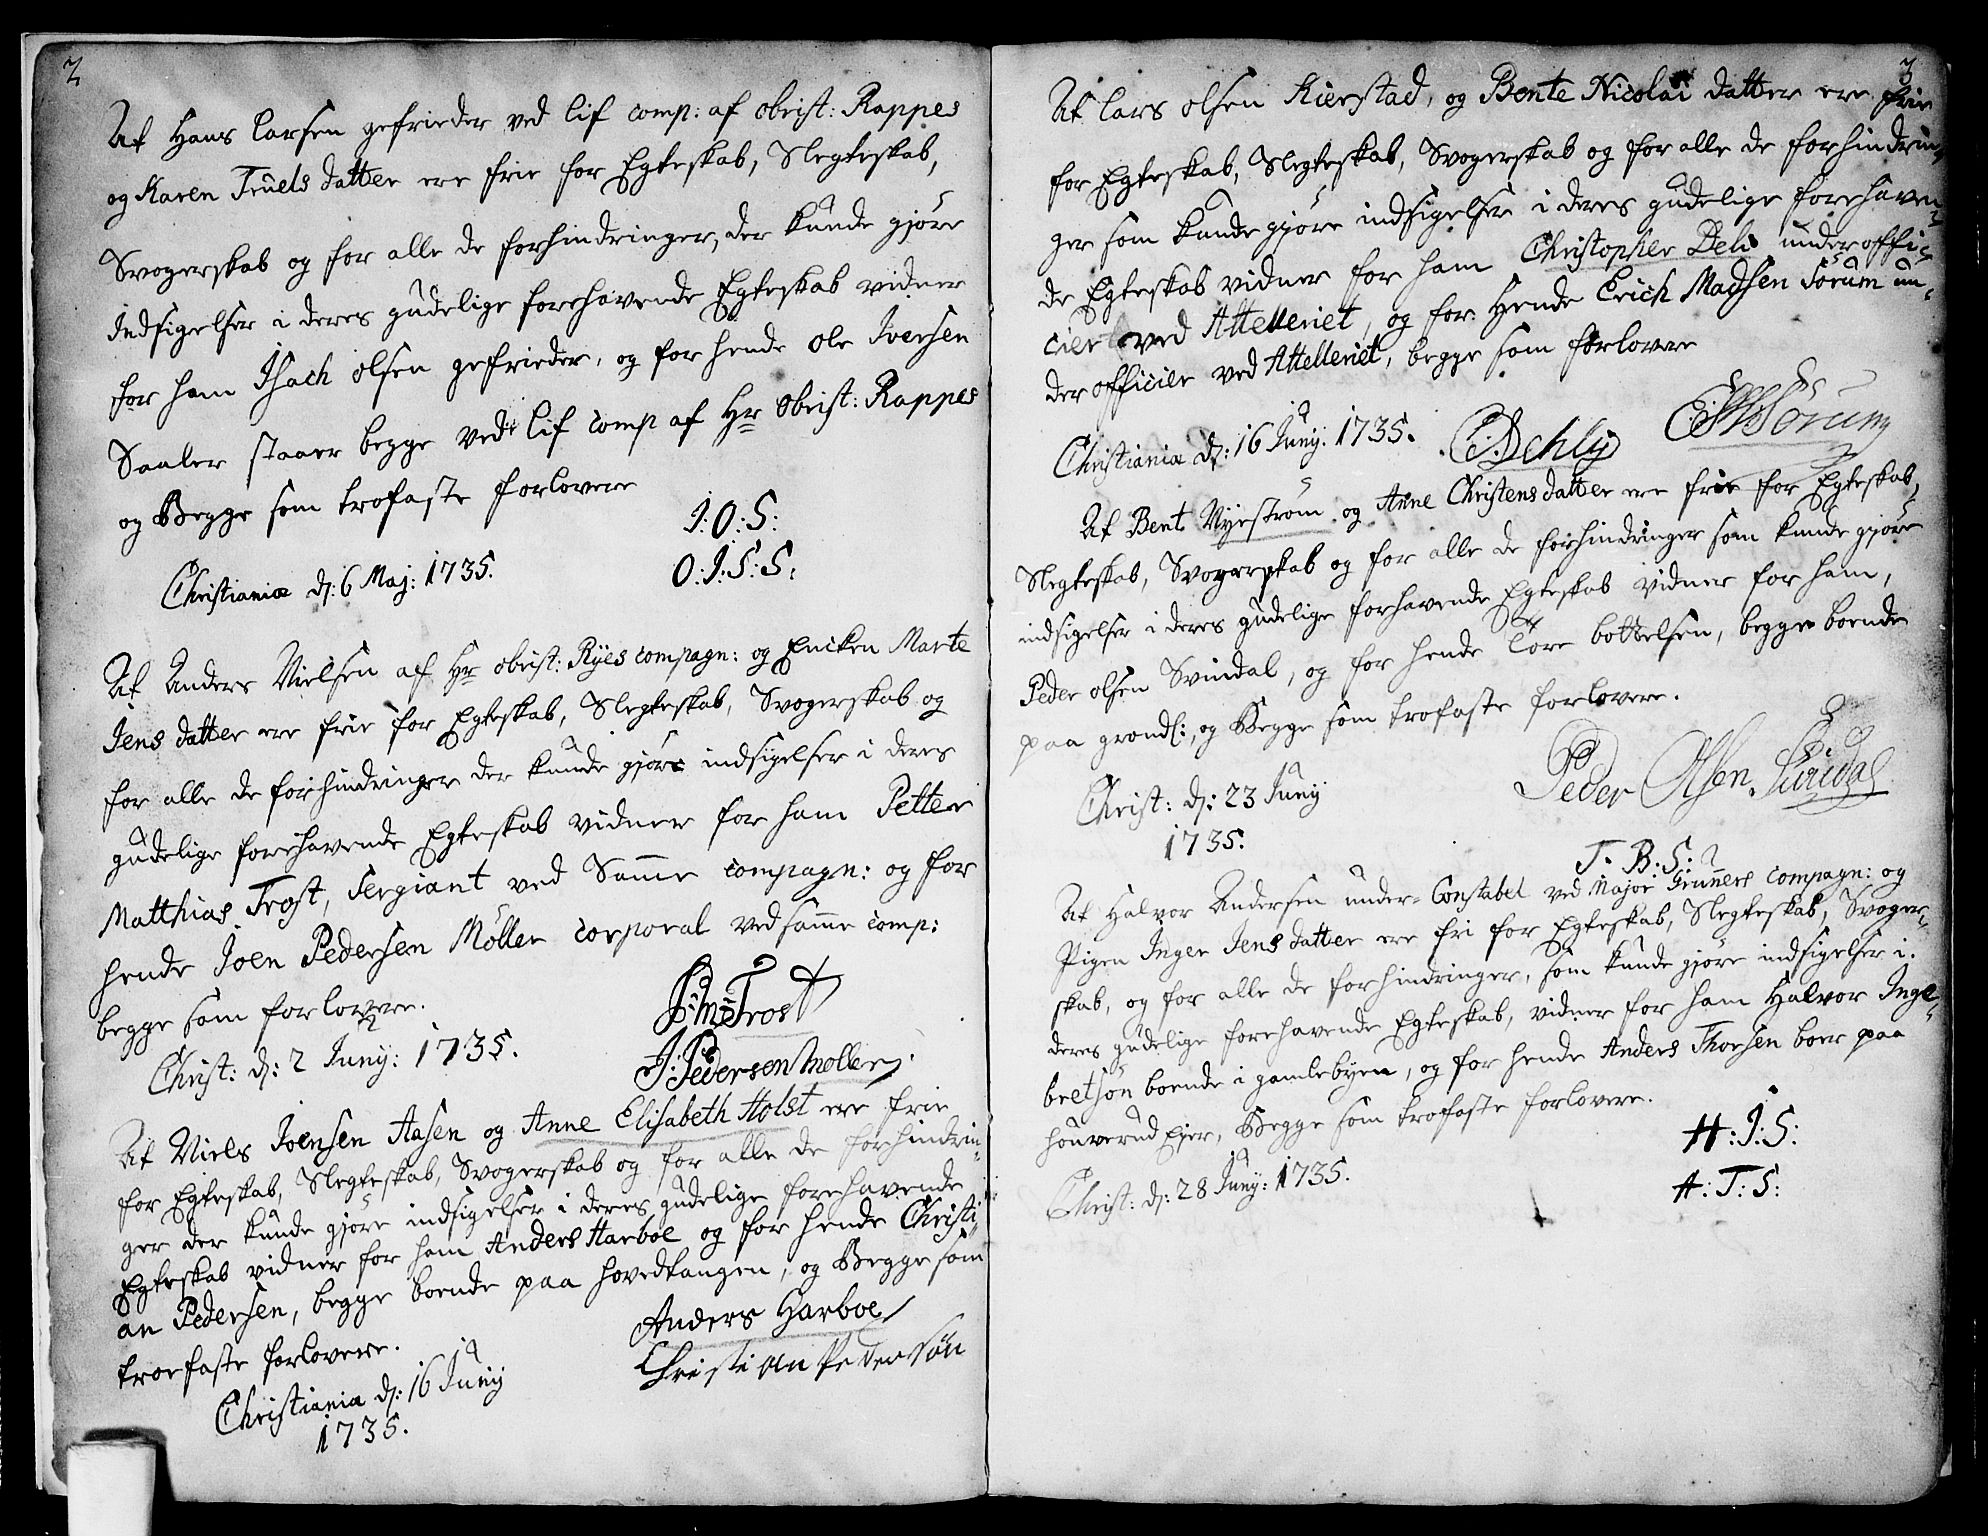 2
At Hans Larsen gefrieder ved lif comp: af obrist: Rappes
og Karen Truels datter ere frie for Egteskab, Slegteskab,
Svogerskab og for alle de forhindringer, der kunde gjöre
Indsigelser i deres gudelige forehavende Egteskab vidner
for ham Isach olsen gefrieder, og for hende ole Iversen
Saaler staaer begge ved lif comp af Hr obrist: Rappes
og Begge som trofaste forlovere
I:O:S:
Christiania d: 6 Maj: 1735.
O:I:S:S:
At Anders Nielsen af Hr obrist: Ryes compagn: og Encken Marte
Jens datter ere frie for Egteskab, Slegteskab, Svogerskab og
for alle de forhindringer der kunde gjöre indsigelser i deres
gudelige forehavende Egteskab vidner for ham Petter
Matthias Trost, Sergiant ved Samme compagn: og for
hende Joen Pedersen Möller corporal ved samme comp:
begge som forlovere.
P:M:Trost
Christ: d: 2 Juny: 1735.
J:PedersenMöller
At Niels Joensen Aasen og Anne Elisabeth Holst ere frie
for Egteskab, Slegteskab, Svogerskab og for alle de forhindrin-
ger der kunde gjöre indsigelser i deres gudelige forehavende
Egteskab vidner for ham Anders Harboe og for hende Christi-
an Pedersen, begge boende paa hovedtangen, og Begge som
troefaste forlovere.
Anders Harboe
Christian Pedersön
Christiania d: 16 Juny
1735.
3
At Lars olsen Kierstad, og Bente Nicolai datter ere frie
for Egteskab, Slegteskab, Svogerskab og for alle de forhindrin-
ger som kunde gjöre indsigelser i deres gudelige forehaven-
de Egteskab vidner for ham Christopher Deli underoffi-
cier ved Attelleriet, og for Hende Erich Madsen Sörum un-
derofficier ved Attelleriet, begge som forlovere
Christiania d: 16 Juny: 1735. C:Dehly EMSörum
At Bent Nyestrøm og Anne Christens datter ere frie for Egteskab,
Slegteskab, Svogerskab og for alle de forhindringer som kunde gjöre
indsigelser i deres gudelige forhavende Egteskab vidner for ham,
Peder olsen Svindal, og for hende Tore bottelsen, begge boende
paa grønds:, og Begge som trofaste forlovere.
Peder Olsen Suindal
Christ: d: 23 Juny
1735.
T. B: S:
At Halvor Andersen under-Constabel ved Major Grüners compagn: og
Pigen Inger Jens datter ere fri for Egteskab, Slegteskab, Svoger-
skab, og for alle de forhindringer, som kunde gjöre indsigelser i
deres gudelige forehavende Egteskab, vidner for ham Halvor Inge-
bretsön boende i gamlebyen, og for hende Anders Thorsen boer paa
houverud Ejer, Begge som trofaste forlovere.
H:I:S:
Christ: d: 28 Juny: 1735.
A:T:S: